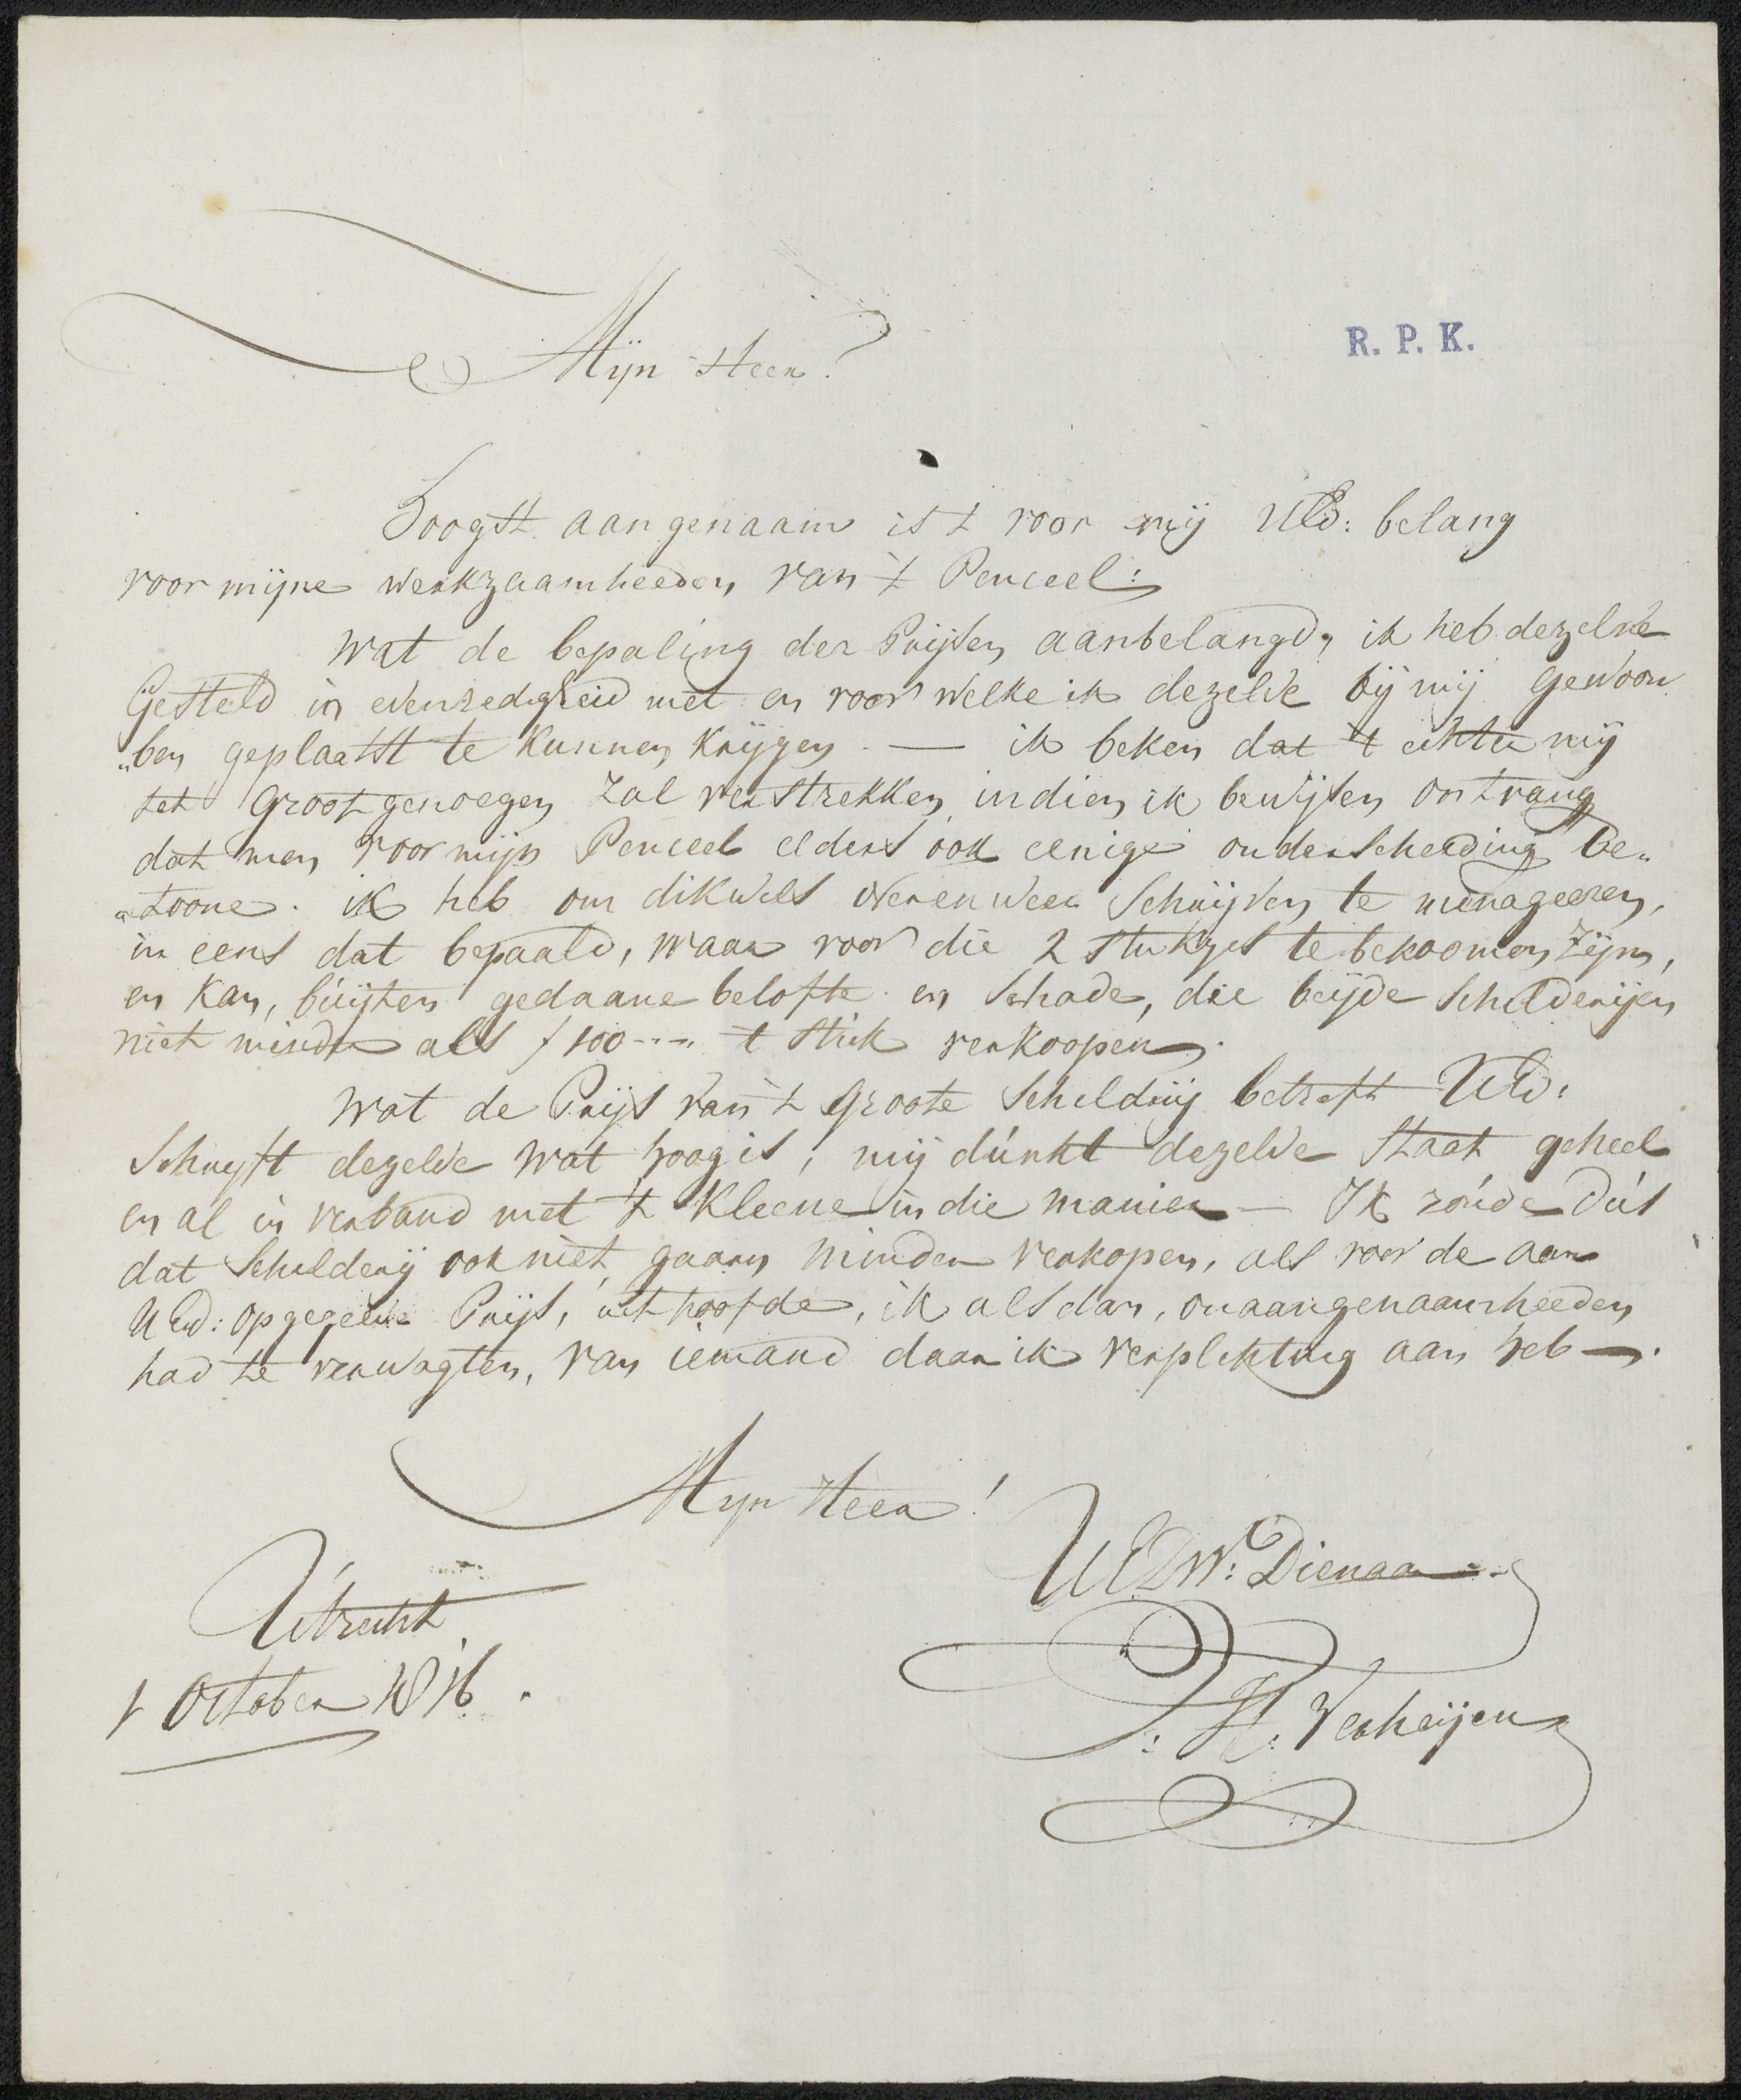 R. P. K.
Mijn Heer!
Hoogst aangenaam is 't voor mij UEd: belang
voor mijne werkzaamheeden van 't Penceel:
Wat de bepaling der Prijsen aanbelangd, ik heb dezelve
Gesteld in evenredigheid met en voor welke ik dezelve bij mij gewoon
ben geplaatst te kunnen krijgen. — ik beken dat 't echter mij
tot Groot genoegen zal verstrekken, indien ik bewijsen ontvang
dat men voor mijn Penceel elders ook eenige onderscheiding be„
„toone. ik heb om dikwels weer en weer Schrijven te menageeren,
in eens dat bepaald, waar voor die 2 stukjes te bekoomen zijn,
en kan, buijten gedaane belofte en schade, die beijde Schilderijen
niet minder als f 100--- 't stuk verkoopen.
Wat de Prijs van 't Groote Schildrij betreft UEd:
Schrijft dezelve wat hoog is, mij dunkt dezelve Staat geheel
en al in verband met 't Kleene in die manier — Ik zoude dus
dat Schilderij ook niet gaarn minder verkopen, als voor de aan
UEd: opgegeeve Prijs, uit hoofde, ik als dan, onaangenaamheeden
had te verwagten, van iemand daar ik verplichting aan heb —.
Mijn Heer!
UEDW: Dienaar
Utrecht
1 October 1816.
J: H: Verheijen